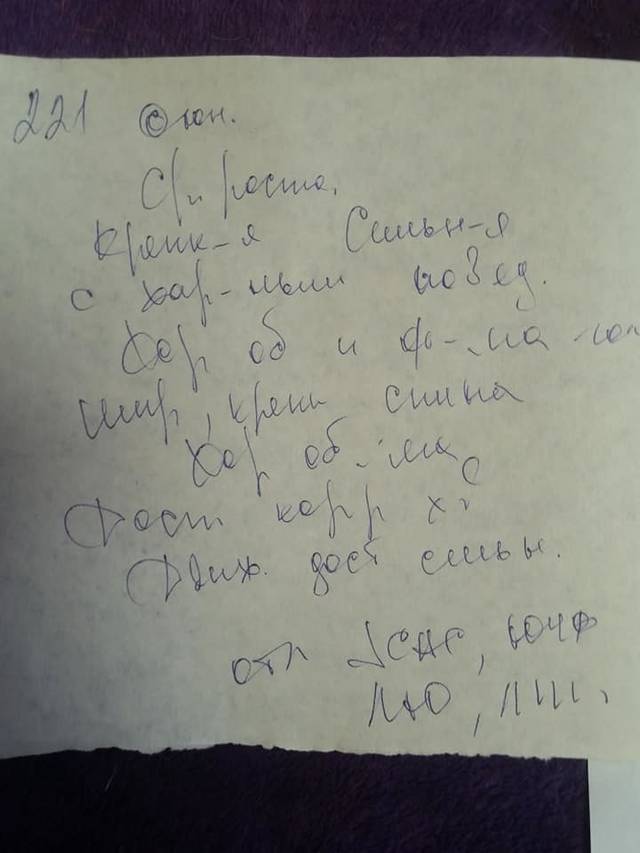 221 юн.
Ср. роста,
Крепк-я Сильн-я
с хар-ным повед.
Хор об и фо-ма
шир, крепк спина
Хор об
Дост корр х
Движ. дост сильн.
отл JCAC, ЮЧФ
ЛЮ, ЛШ,